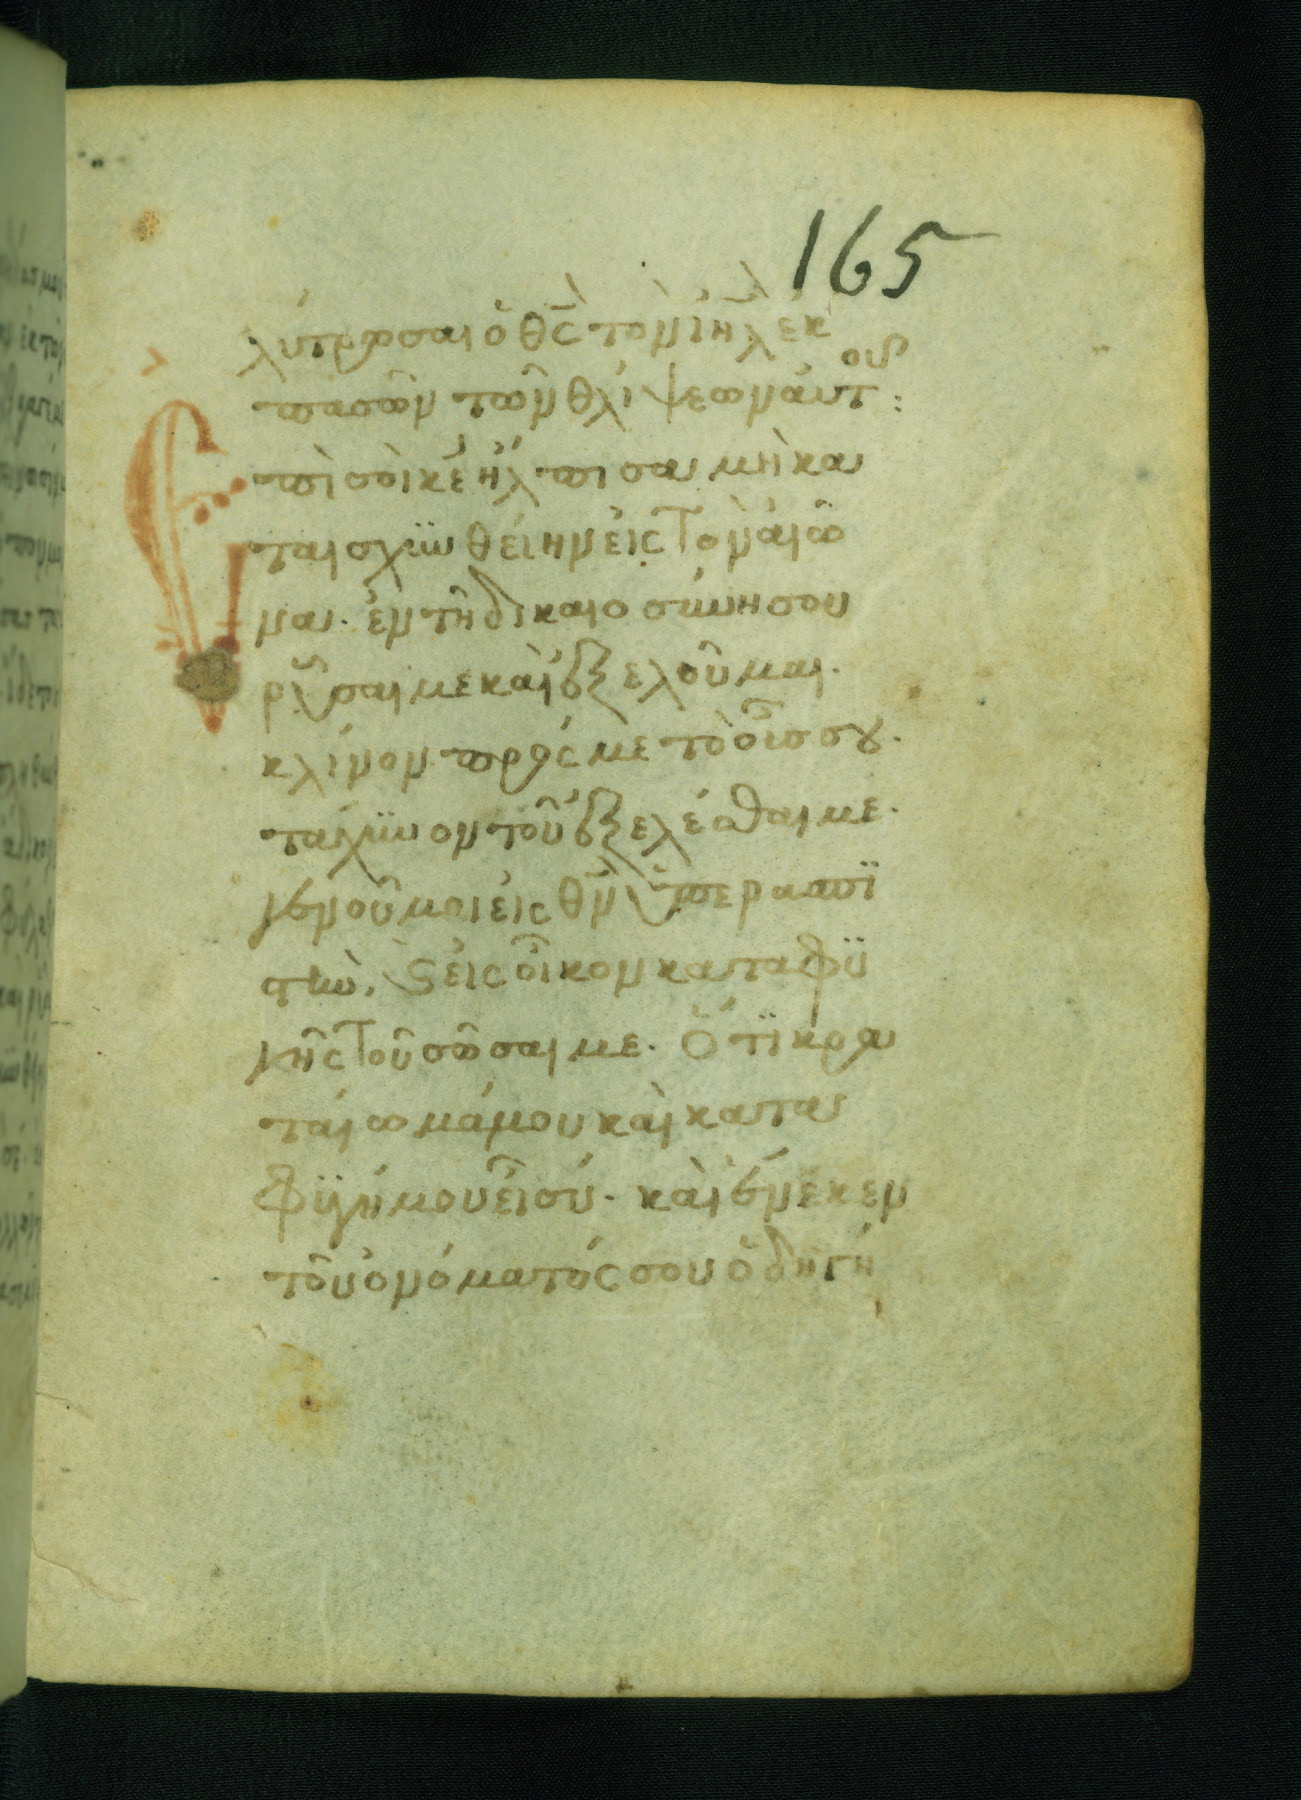 165
λύτρωσαι ὁ θς τὸν ιηλ ἐκ
πασῶν τῶν θλίψεων αὐτοῦ:
Ἐπὶ σοὶ κε ἤλπισα μὴ κα
ταισχϋνθείην εἰς τὸν αἰῶ
να. ἐν τῆ δικαιοσύνη σου
ρῦσαι με καὶ ἐξελοῦ μαι.
κλίνον πρός με τὸ οὖς σου.
τάχϋνον τοῦ ἐξελέσθαι με.
γενοῦ μοι εἰς θν ὑπερασπϊ
στὴν, ϗ εἰς οἶκον καταφϋ
γῆς τοῦ σῶσαι με. Ὅτϊ κρα
ταίωμά μου καὶ κατα
φϋγή μου εἶ σύ. καὶ ἕνεκεν
τοῦ ὀνόματός σου ὁδηγή